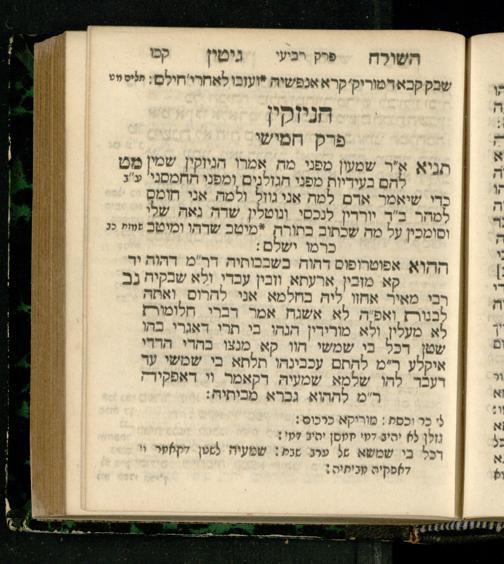 השולח פרק רביעי גיטין קכו
שבק קבא דמוריק׳ קרא אנפשיה *ועזבו לאחרי׳ חילם: תלים מט
הניזקין
פרק חמישי
תניא א״ר שמעון מפני מה אמרו הניזקין שמין מט
להם בעידית מפני הגזלנים ומפני החמסני׳ ע״ב
כדי שיאמר אדם למה אני גוזל ולמה אני חומס
למהר ב״ד יורדין לנכסי ונוטלין שדה נאה שלי
וסומכין על מה שכתוב בתורה *מיטב שדהו ומיטב שמות כב
כרמו ישלם:
ההוא אפוטרופוס דהוה בשבבותיה דר״מ דהוה יד
קא מזבין ארעתא וזבין עבדי ולא שבקיה נב
רבי מאיר אחוו ליה בחלמא אני להרוס ואתה
לבנות ואפ״ה לא אשגח אמר דברי חלומות
לא מעלין ולא מורידין הנהו בי תרי דאגרי בהו
שטן דכל בי שמשי הוו קא מנצו בהדי הדדי
איקלע ר״מ להתם עכבינהו תלתא בי שמשי עד
דעבד להו שלמא שמעיה דקאמר וי דאפקיה
ר״מ לההוא גברא מביתיה:
לי כד וכסת: מוריקא כרכום:
גזלן לא יהיב דמי חמסן יהיב דמי:
דכל בי שמשא של ערב שבת: שמעיה לשטן דקאמר וי
דאפקיה מביתיה: